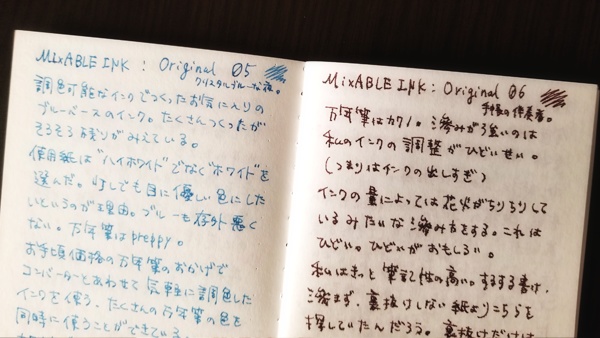 MixABLE INK : Original 05
クリスタルブルーな夜。
調色可能なインクでつくったお気に入りの
ブルーベースのインク。たくさんつくったが
そろそろ残りがみえている。
使用紙は"ハイホワイト"でなく"ホワイト"を
選んだ。少しでも目に優しい色にした
いというのが理由。ブルーも存外悪く
ない。万年筆はpreppy。
お手頃価格の万年筆のおかげで
コンバーターとあわせて気軽に調色した
インクを使う。たくさんの万年筆の色を
同時に使うことができている
MixABLE INK : Original 06
手帳の伴奏者。
万年筆はカクノ。滲みが強いのは
私のインクの調整がひどいせい。
(つまりはインクの出しすぎ)
インクの量によっては花火がちりちりして
いるみたいな滲み方をする。これは
ひどい。ひどいがおもしろい。
私はきっと筆記性の高い。するする書け、
滲まず、裏抜けしない紙よりこちらを
探していたんだろう。裏抜けだけは